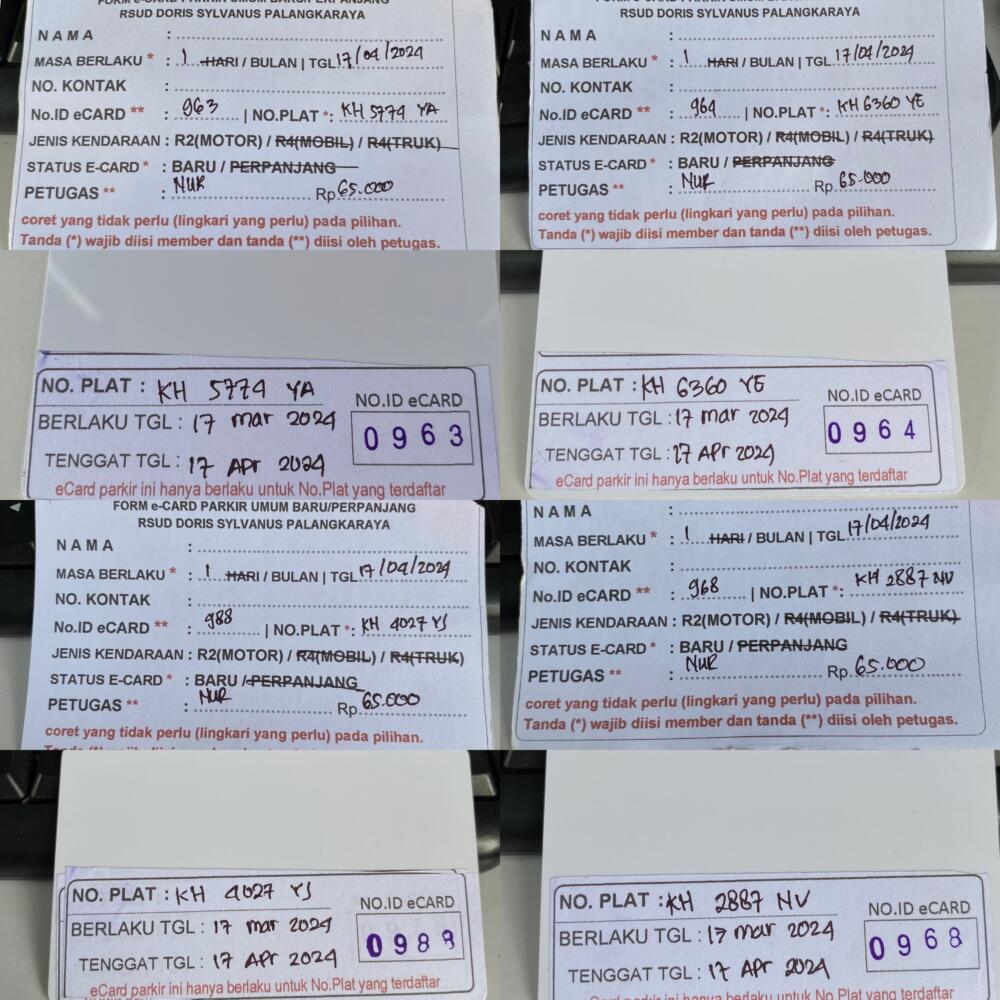 FORM e-CARD PARKIR UMUM BARU/PERPANJANG
RSUD DORIS SYLVANUS PALANGKARAYA
N A M A :
MASA BERLAKU * : 1 HARI / BULAN | TGL 17/04/2024
NO. KONTAK :
No.ID eCARD ** : 963 | NO.PLAT *: KH 5774 YA
JENIS KENDARAAN : R2(MOTOR) / R4(MOBIL) / R4(TRUK)
STATUS E-CARD * : BARU / PERPANJANG
PETUGAS ** : NUR Rp 65.000
coret yang tidak perlu (lingkari yang perlu) pada pilihan.
Tanda (*) wajib diisi member dan tanda (**) diisi oleh petugas.
RSUD DORIS SYLVANUS PALANGKARAYA
N A M A :
MASA BERLAKU * : 1 HARI / BULAN | TGL 17/04/2024
NO. KONTAK :
No.ID eCARD ** : 964 | NO.PLAT *: KH 6360 YE
JENIS KENDARAAN : R2(MOTOR) / R4(MOBIL) / R4(TRUK)
STATUS E-CARD * : BARU / PERPANJANG
PETUGAS ** : NUR Rp 65.000
coret yang tidak perlu (lingkari yang perlu) pada pilihan.
Tanda (*) wajib diisi member dan tanda (**) diisi oleh petugas.
NO. PLAT : KH 5774 YA
NO.ID eCARD
BERLAKU TGL : 17 mar 2024
0963
TENGGAT TGL : 17 Apr 2024
eCard parkir ini hanya berlaku untuk No.Plat yang terdaftar
NO. PLAT : KH 6360 YE
NO.ID eCARD
BERLAKU TGL : 17 mar 2024
0964
TENGGAT TGL : 17 Apr 2024
eCard parkir ini hanya berlaku untuk No.Plat yang terdaftar
FORM e-CARD PARKIR UMUM BARU/PERPANJANG
RSUD DORIS SYLVANUS PALANGKARAYA
N A M A :
MASA BERLAKU * : 1 HARI / BULAN | TGL 17/04/2024
NO. KONTAK :
No.ID eCARD ** : 988 | NO.PLAT *: KH 4027 YS
JENIS KENDARAAN : R2(MOTOR) / R4(MOBIL) / R4(TRUK)
STATUS E-CARD * : BARU / PERPANJANG
PETUGAS ** : NUR Rp 65.000
coret yang tidak perlu (lingkari yang perlu) pada pilihan.
N A M A :
MASA BERLAKU * : 1 HARI / BULAN | TGL 17/04/2024
NO. KONTAK :
No.ID eCARD ** : 968 | NO.PLAT *: KH 2887 NV
JENIS KENDARAAN : R2(MOTOR) / R4(MOBIL) / R4(TRUK)
STATUS E-CARD * : BARU / PERPANJANG
PETUGAS ** : NUR Rp 65.000
coret yang tidak perlu (lingkari yang perlu) pada pilihan.
Tanda (*) wajib diisi member dan tanda (**) diisi oleh petugas.
NO. PLAT : KH 4027 YS
NO.ID eCARD
BERLAKU TGL : 17 mar 2024
0988
TENGGAT TGL : 17 Apr 2024
eCard parkir ini hanya berlaku untuk No.Plat yang terdaftar
NO. PLAT : KH 2887 NV
NO.ID eCARD
BERLAKU TGL : 17 mar 2024
0968
TENGGAT TGL : 17 Apr 2024
eCard parkir ini hanya berlaku untuk No.Plat yang terdaftar